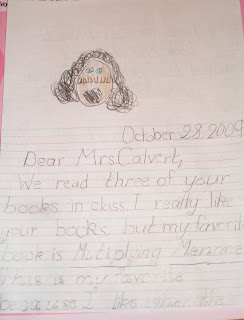 October 28, 2009
Dear Mrs. Calvert,
We read three of your
books in class. I really like
your books, but my favorit
book is Multiplying Menace
This is my favorite
because I like when the